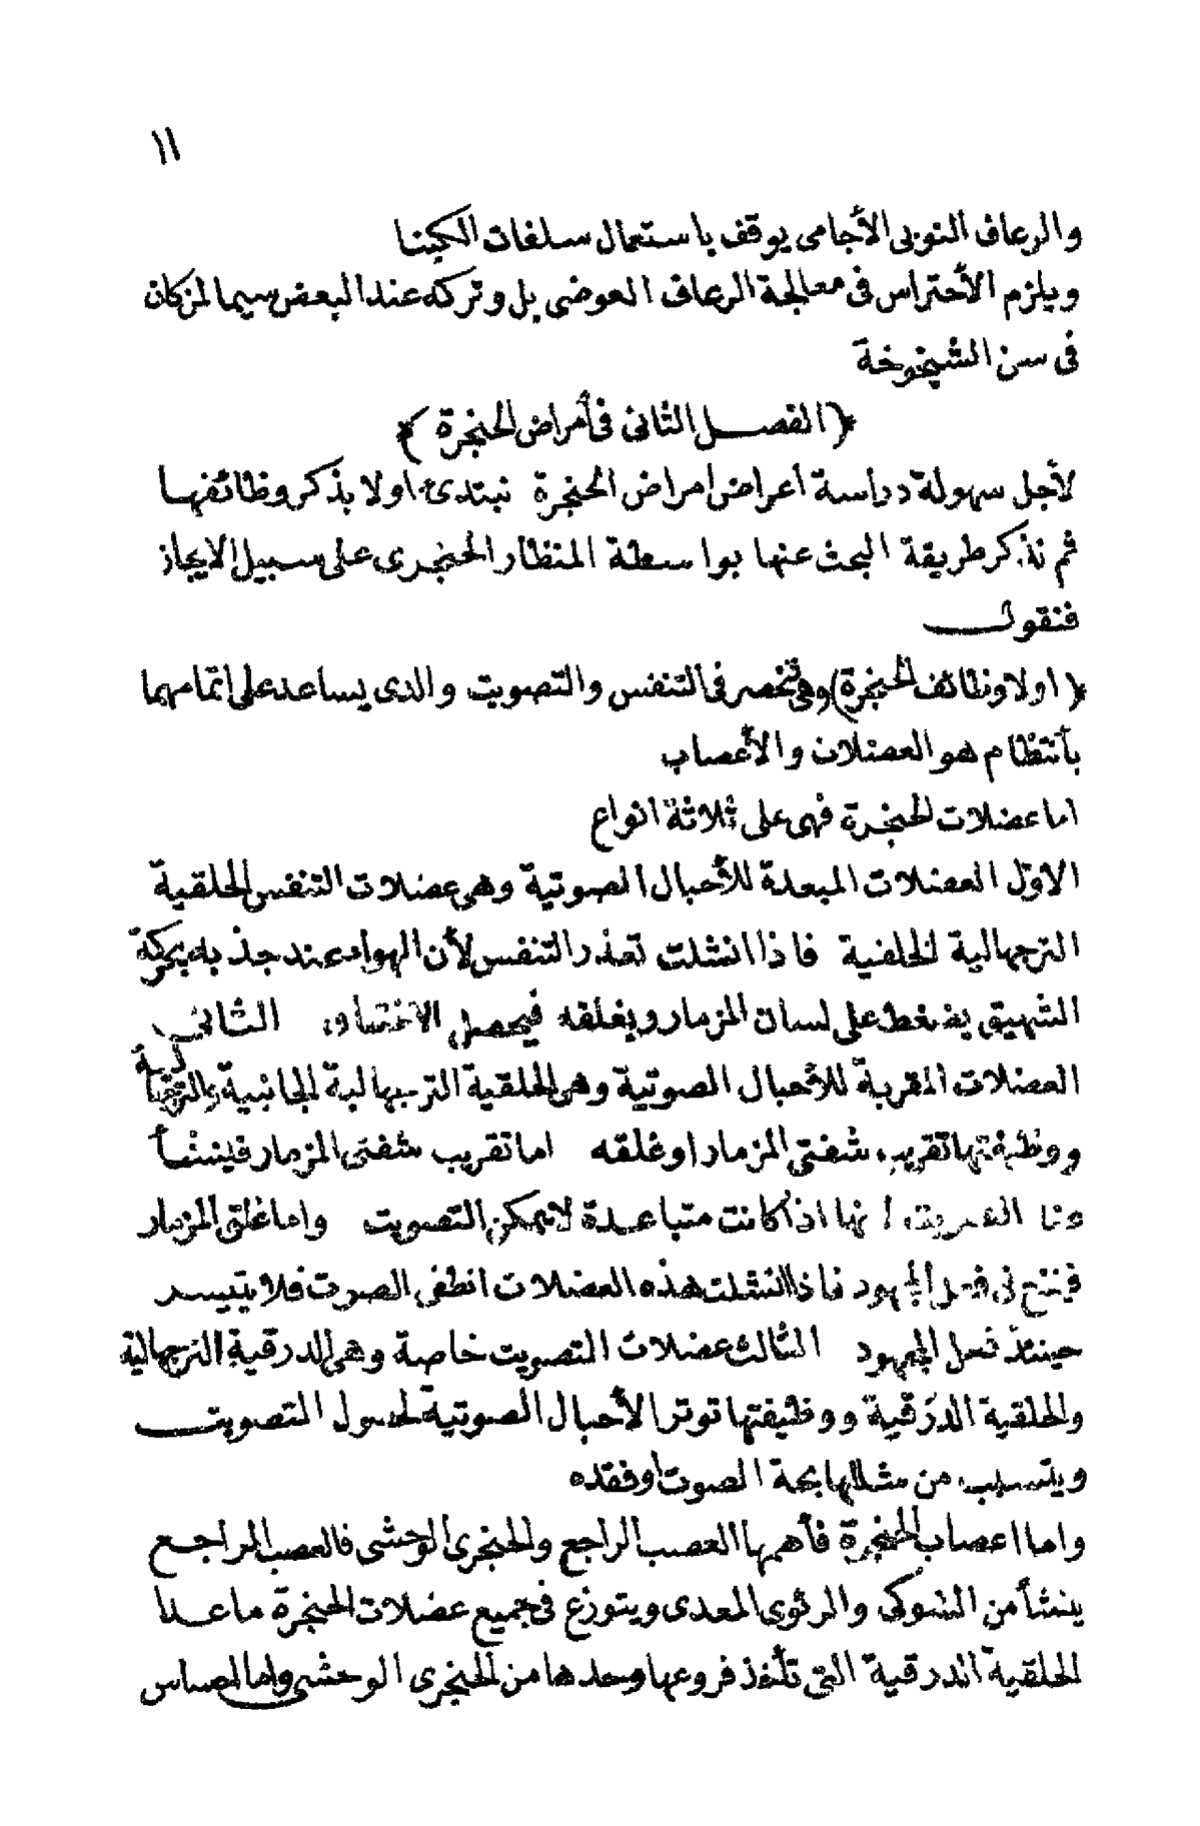 ١١
والرعاف النوبى الأجامى يوقف باستعمال سلفات الكينا
ويلزم الأحتراس فى معالجة الرعاف العوضى بل وتركه عند البعض سيما لمن كان
فى سن الشيخوخة
﴿الفصل الثانى فى أمراض الحنجرة﴾
لأجل سهولة دراسة اعراض امراض الحنجرة نبتدئ اولا بذكر وظائفها
ثم نذكر طريقة البحث عنها بواسطة المنظار الحنجرى على سبيل الايجاز
فنقول
﴿اولا وظائف الحنجرة﴾ وهى تنحصر فى التنفس والتصويت والذى يساعد على اتمامهما
بأنتظام هو العضلات والأعصاب
اما عضلات الحنجرة فهى على ثلاثة انواع
الاول العضلات المبعدة للأحبال الصوتية وهى عضلات التنفس الحلقية
الترجهالية الخلفية فاذا انشلت تعذر التنفس لأن الهواء عند جذبه بحركة
الشهيق يضغط على لسان المزمار ويغلقه فيحصل الاختناق الثانى
العضلات المقربة للأحبال الصوتية وهى الحلقية الترجهالية الجانبية
ووظيفتها تقريب شفتى المزمار او غلقه اما تقريب شفتى المزمار فينشأ
التصويت لأنها اذا كانت متباعدة لا يمكن التصويت واما غلق المزمار
فينتج فى فعل المجهود فاذا انشلت هذه العضلات انطفى الصوت فلا يتيسر
حينئذ فعل المجهود الثالث عضلات التصويت خاصة وهى الدرقية الترجهالية
والحلقية الدرقية ووظيفتها توتر الأحبال الصوتية لحصول التصويت
ويتسبب من شللها بحة الصوت او فقده
واما اعصاب الحنجرة فأهمها العصب الراجع والحنجرى الوحشى فالعصب الراجع
ينشأ من الشوكى والرئوى المعدى ويتوزع فى جميع عضلات الحنجرة ما عدا
الحلقية الدرقية التى تأخذ فروعها وحدها من الحنجرى الوحشى واما احساس